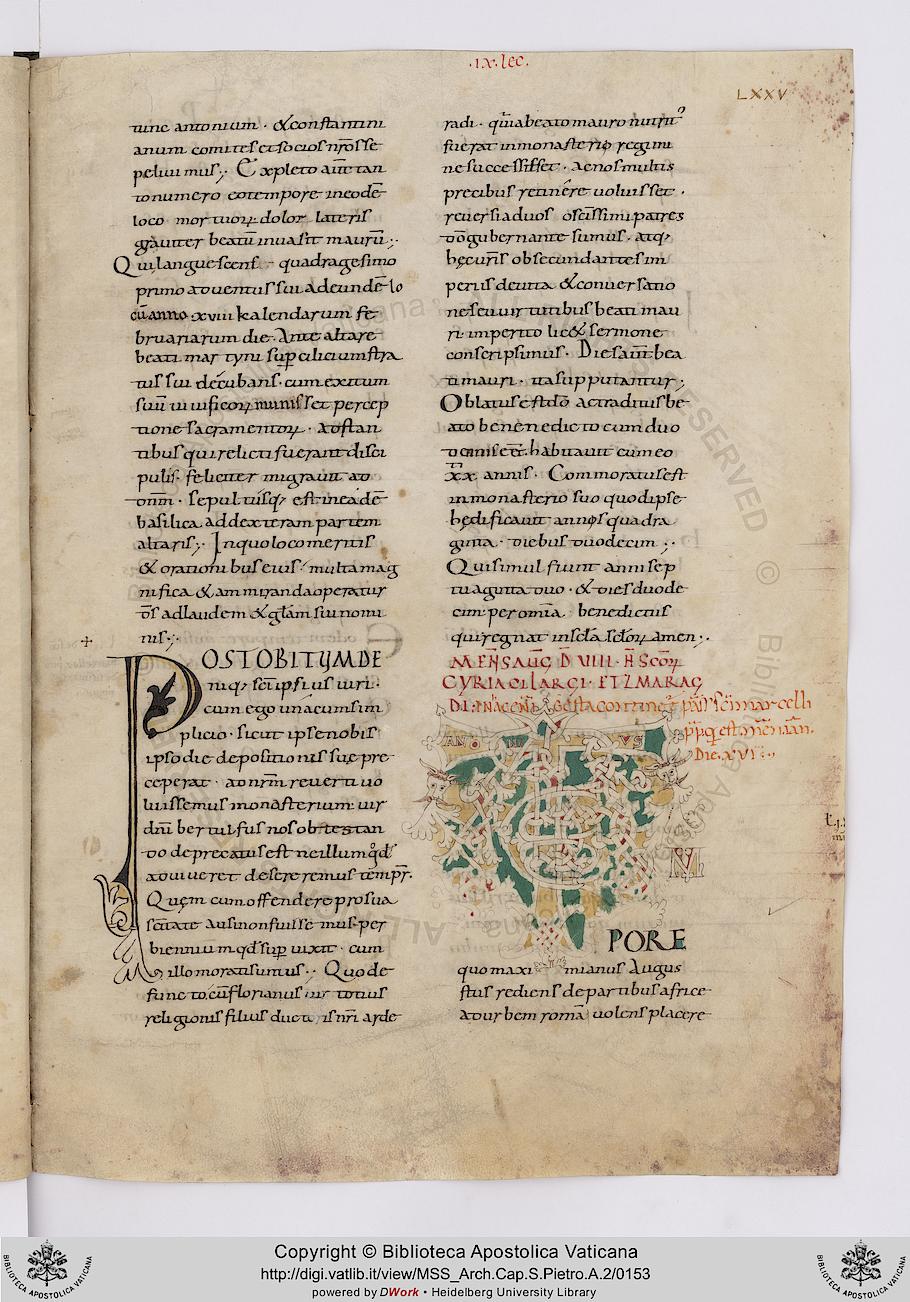 ·IX· lec̄.
LXXV
tunc antonium · & constantini
anum comites et socios nr̄os se
peliuimus ; Expleto aut̄ tan
to numero eo tempore in eodē
loco mortuoꝝ dolor lateris
grauiter beatū inuasit maurū ;
Qui languescens quadragesimo
primo aduentus sui ad eundē lo
cū anno xviii kalendarum fe
bruariarum die · Ante altare
beati martyris sup̄ cilicium stra
tus sui decubans · cum exitum
suū uiuificoꝝ munisset percep
tione sacramentoꝝ · adstan
tibus qui relicti fuerant disci
pulis · feliciter migrauit ad
dn̄m · sepultusq; est in eadē
basilica ad dexteram partem
altaris ; In quo loco meritis
& orationibus eius multa mag
nifica & ammiranda operatur
ds̄ ad laudem & glām sui nomi
nis ;
POST OBITUM DE
niq; sc̄i ipsius uiri ·
cum ego una cum sim
plicio · sicut ipse nobis
ipso die depositionis suę pre
ceperat · ad nr̄m reuerti uo
luissemus monasterium · uir
dn̄i bertulfus nos obtestan
do deprecatus est ne illum qd̄
aduiueret desereremus temp̄r ·
Quem cum offendere pro sua
sc̄itate ausi non fuissemus · per
biennium qd̄ sup̄uixit · cum
illo morati sumus · Quo de
functo · cū florianus uir totius
religionis filius ducturis nr̄i arde
radi · quia beato mauro nutrit᷒
fuerat in monasterio regimi
ne successisset · Ac nos multis
precibus retinere uoluisset ·
reuersi ad uos o sc̄issimi patres
dō gubernante sumus · atq;
hęc ur̄is obsecundantes im
periis de uita & conuersatio
ne seu uirtutibus beati mau
ri · imperito lic& sermone
conscripsimus · Dies aūt bea
ti mauri · ita supputantur ;
Oblatus est dō ac traditus be
ato benedicto cum duo
dennis ēēt · habitauit cum eo
xx annis · Commoratus est
in monasterio suo quod ipse
hędificauit annos quadra
ginta · diebus duodecim ;
Qui simul fiunt anni sep
tuaginta duo · & dies duode
cim · per om̄ia benedictus
qui regnat in scl̄a scl̄oꝝ amen ;
MENS AUG D VIII · N SCOꝝ
CYRIACI LARGI · ET ZMARAG
DI
gesta contineť pass̄ sc̄i marcelli
pp̄ q̄ est men̄ ian̄ ·
Die · XVI ·
PORE
quo maximianus augus
stus rediens de partibus africe
ad urbem romā uolens placere
Copyright © Biblioteca Apostolica Vaticana
http://digi.vatlib.it/view/MSS_Arch.Cap.S.Pietro.A.2/0153
powered by DWork • Heidelberg University Library
BIBLIOTECA APOSTOLICA VATICANA
BIBLIOTECA APOSTOLICA VATICANA